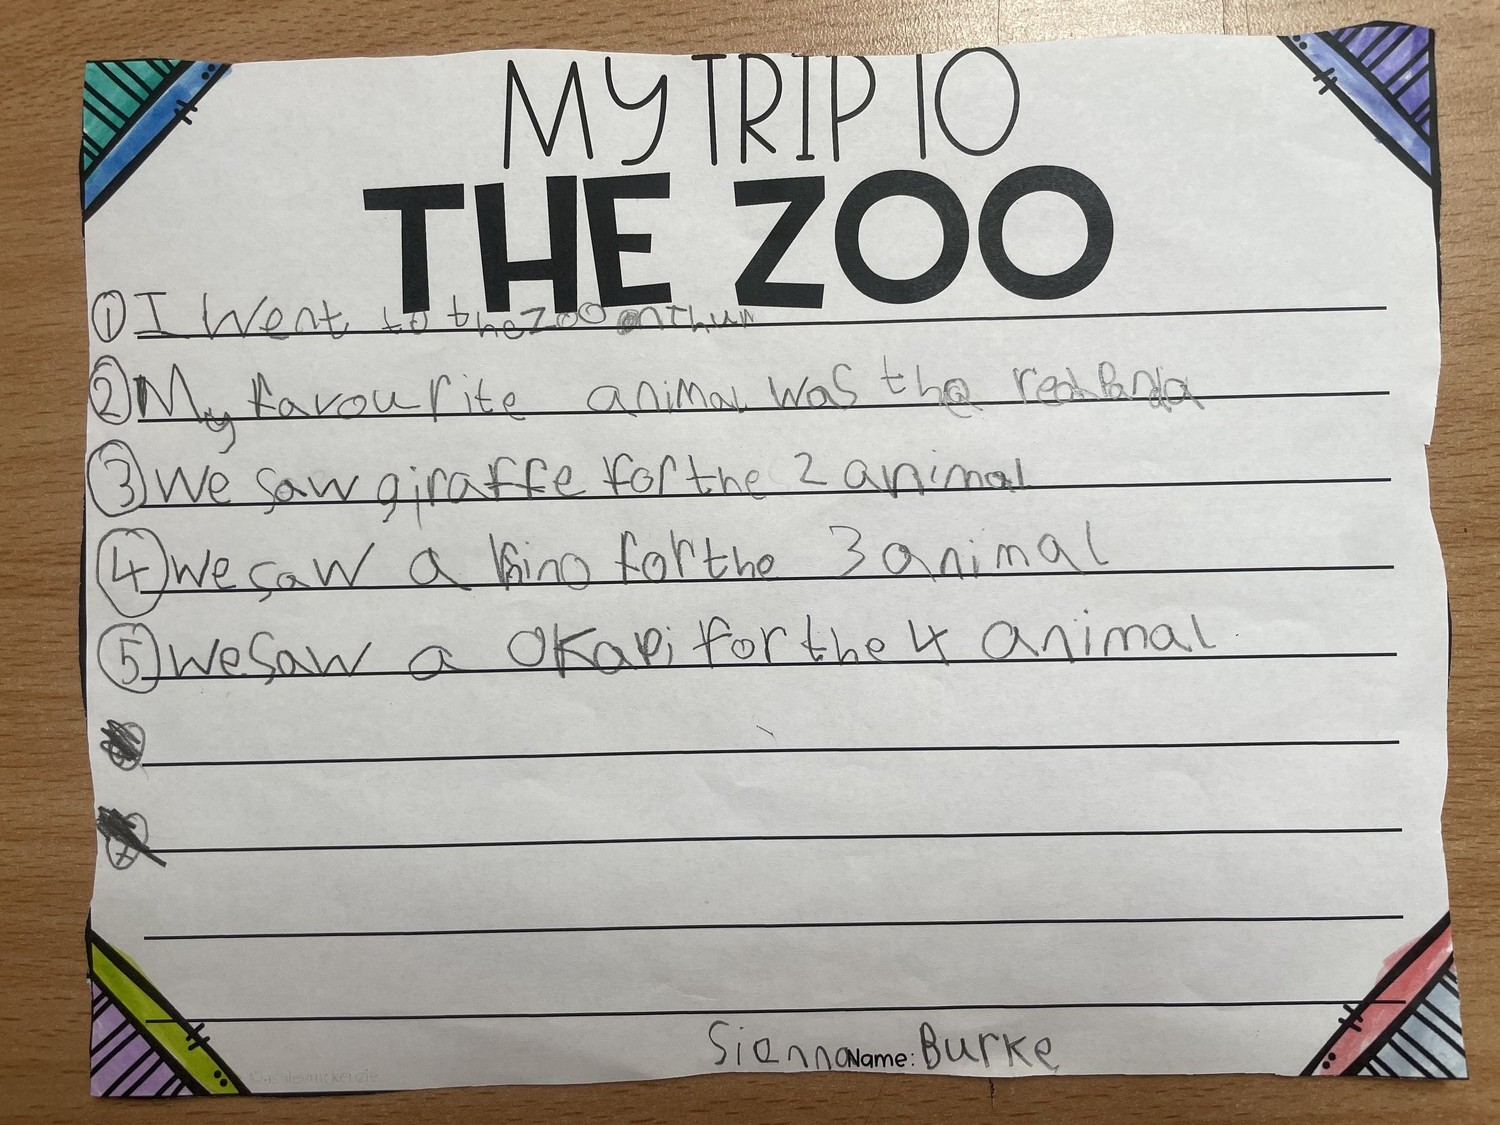 MY TRIP TO
THE ZOO
① I Went to the zoo on thur
② My favourite animal was the red Panda
③ We saw giraffe for the 2 animal
④ we saw a Rino for the 3 animal
⑤ we saw a OKapi for the 4 animal
Sianna Name: Burke